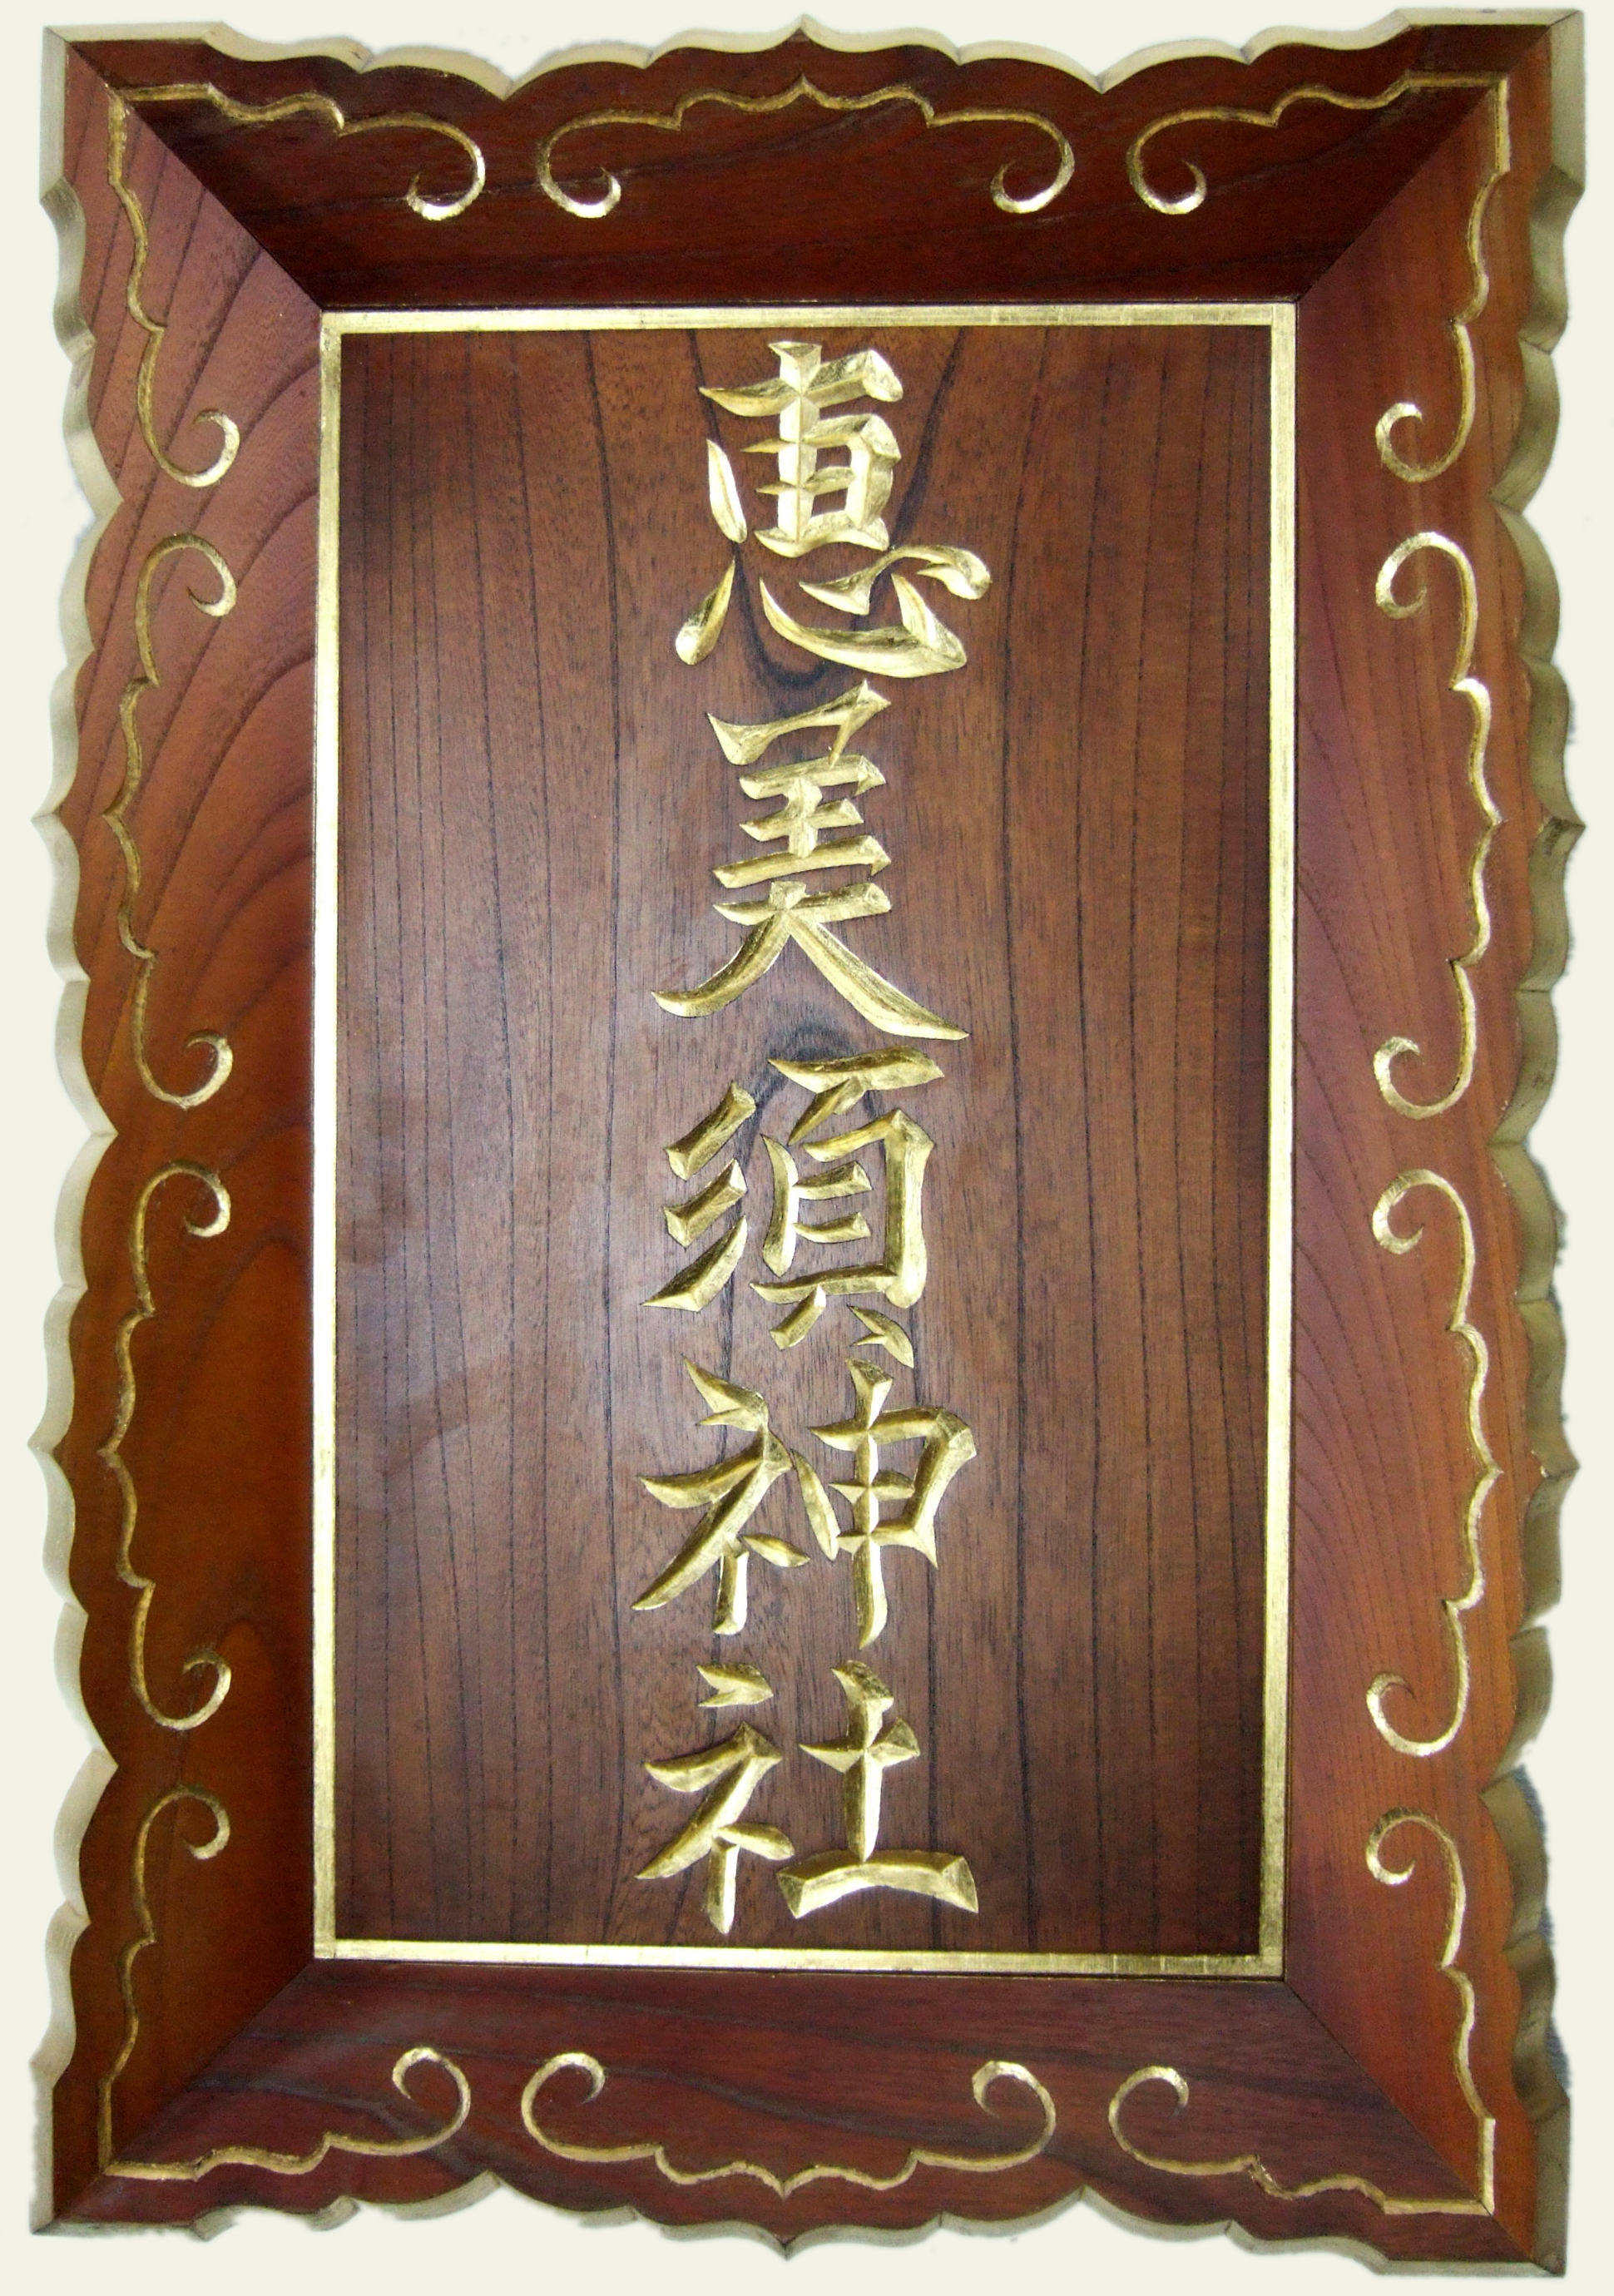 恵美須神社